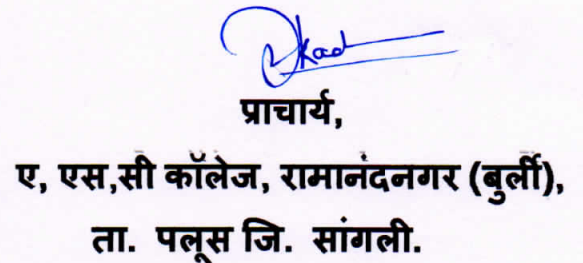 प्राचार्य,
ए, एस,सी कॉलेज, रामानंदनगर (बुर्ली),
ता. पलूस जि. सांगली.